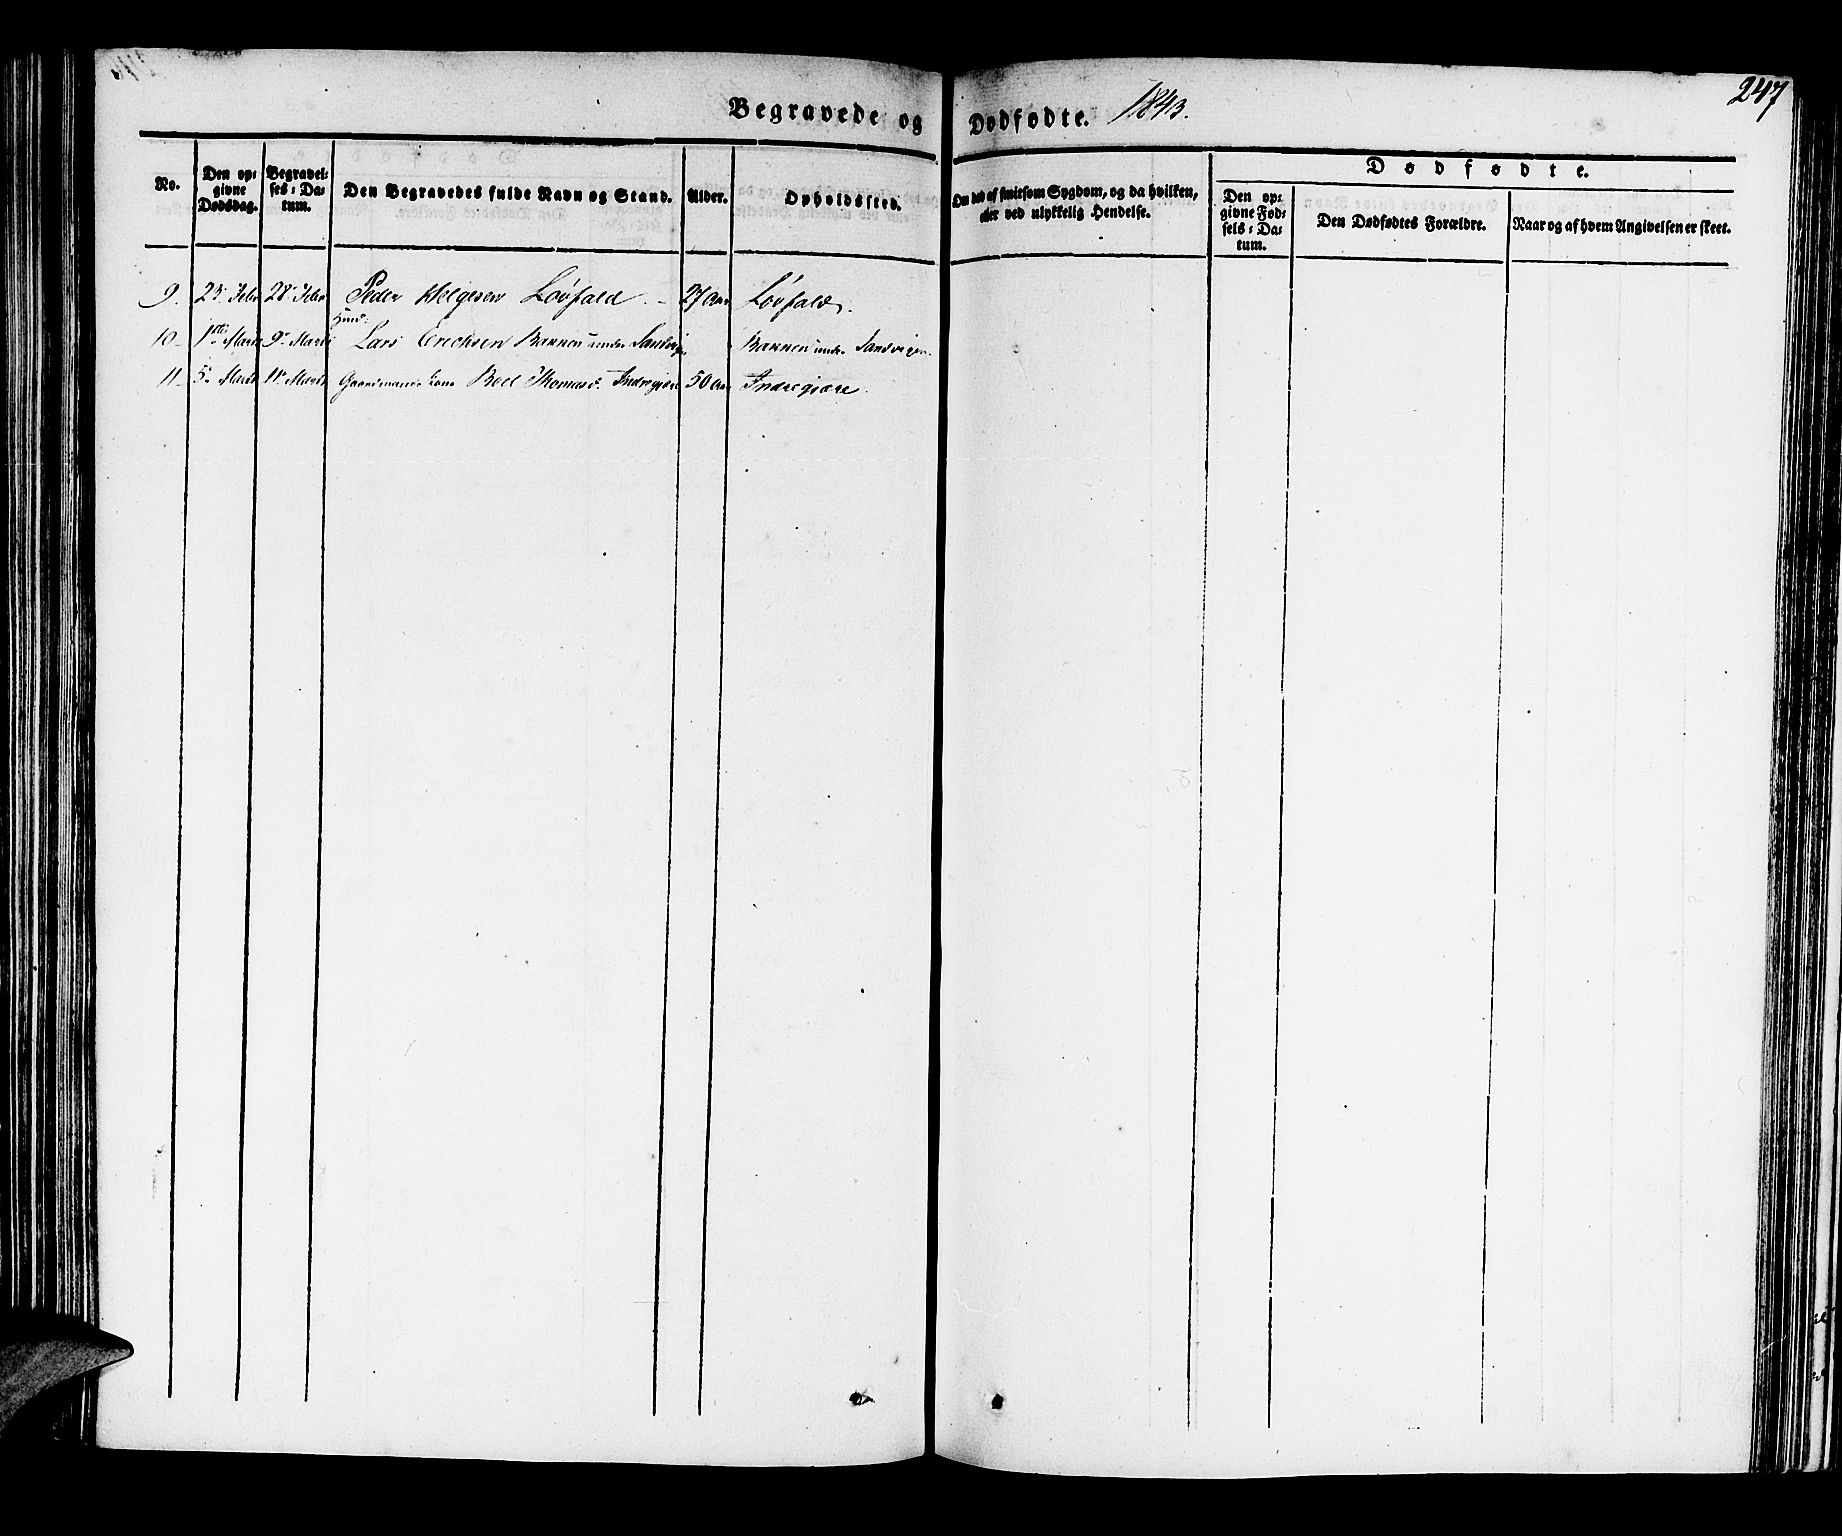 247
Begravede og Dødfødte. 1843.
No.
Den op-
givne
Dødsdag.
Begravel-
ses-Da-
tum.
Den Begravedes fulde Navn og Stand.
Alder.
Opholdssted.
Om død af smitsom Sygdom, og da hvilken,
eller ved ulykkelig Hendelse.
Dødfødte.
Den op-
givne Fød-
sels-Da-
tum.
Den Dødfødtes Forældre.
Naar og af hvem Angivelsen er skeet.
9. 23. Febr 28. Febr Peder Helgesen Løvfald. - 27 Aar Løvfald.
10 - 1ste Marts 9de Marts Lars Erichsen Bakken under Sandvigen Bakken under Sandvigen.
11 - 5te Marts 11te Marts Gaardmands Kone Boel Thomasd. Indregjære 50 Aar Indregjære.